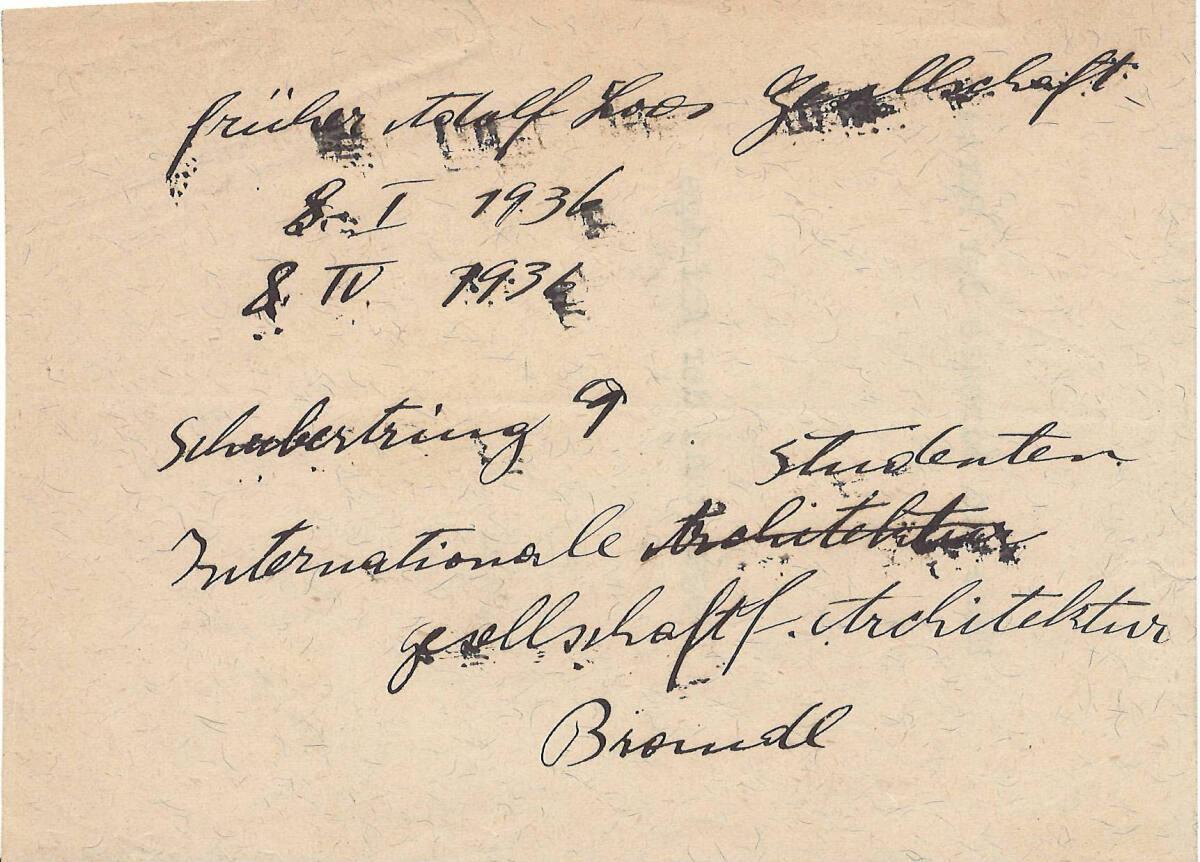 früher Adolf Loos Gesellschaft
8. I 1936
8. IV 1936
Schubertring 9
Studenten
Internationale Architektur
gesellschaft f. Architektur